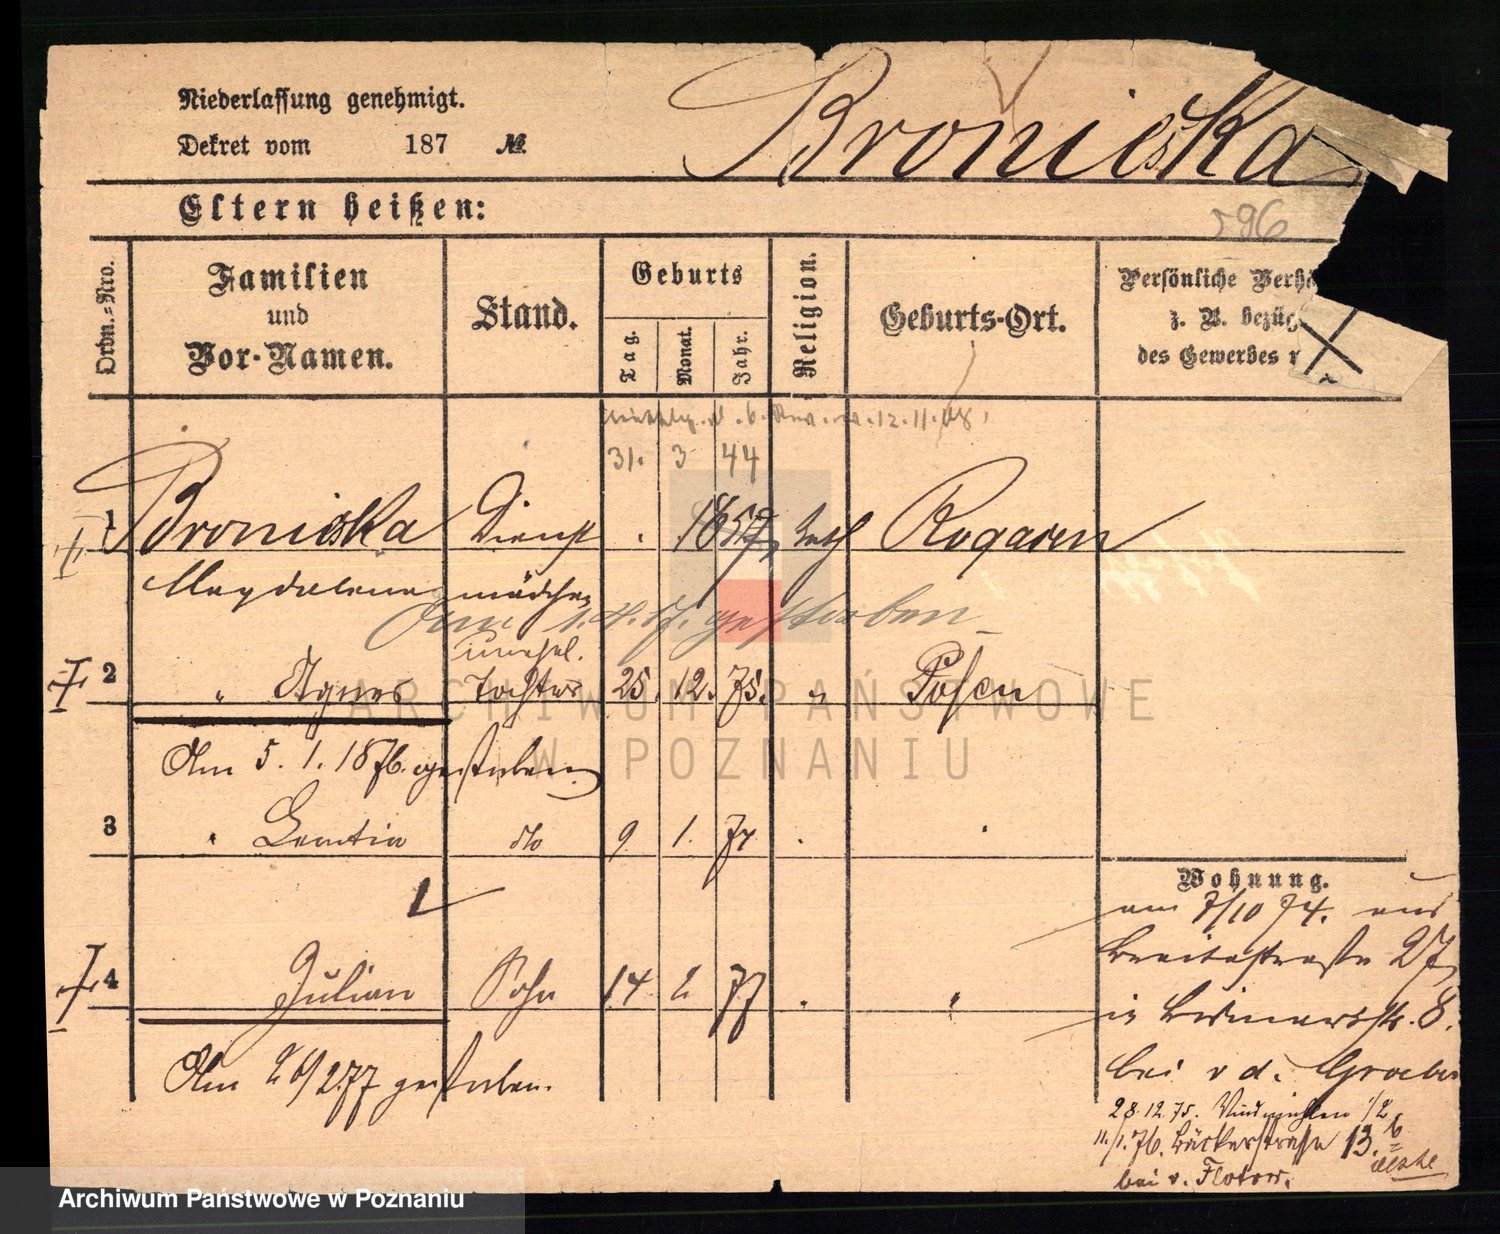 Niederlassung genehmigt.
Dekret vom 187 №
Bronieska
Eltern heißen:
596
Ordn.-Nro.
Familien
und
Vor-Namen.
Stand.
Geburts
Tag.
Monat.
Jahr.
Religion.
Geburts-Ort.
Persönliche Verhä
z. B. bezüg
des Gewerbes
12.11.08.
31. 3 44
1 Bronieska Dienst 1857 kath Rogasen
Magdalena mädchen
gestorben
unehel.
2 " Agnes Tochter 25. 12. 75. " Posen
Am 5. 1. 1876. gestorben
3 " do 9 1. 77
4 Julian Sohn 14 2 77 " "
Am 26/2 77 gestorben.
Wohnung.
am 7/10 74. aus
Breitestraße 27,
in Bismarckstr. 8.
bei v d. Groeben
28.12.75. 1/2
11./1.76. Bäckerstraße 13.b
bei v. Flotow.
ARCHIWUM PAŃSTWOWE
W POZNANIU
Archiwum Państwowe w Poznaniu